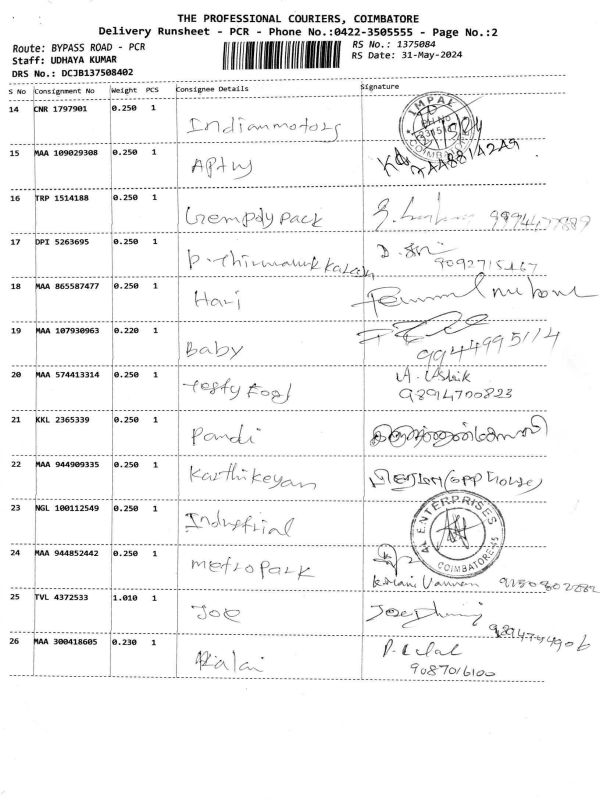 THE PROFESSIONAL COURIERS, COIMBATORE
Delivery Runsheet - PCR - Phone No.:0422-3505555 - Page No.:2
Route: BYPASS ROAD - PCR
Staff: UDHAYA KUMAR
DRS No.: DCJB137508402
RS No.: 1375084
RS Date: 31-May-2024
S No Consignment No Weight PCS Consignee Details Signature
14 CNR 1797901 0.250 1 Indianmotors IMPAL COIMBATORE
15 MAA 109029308 0.250 1
16 TRP 1514188 0.250 1 Gempdy pack
17 DPI 5263695 0.250 1 9092715467
18 MAA 865587477 0.250 1 Hari
19 MAA 107930963 0.220 1 Baby 9944995114
20 MAA 574413314 0.250 1 Testy Food A. Ashik
9894700823
21 KKL 2365339 0.250 1 Pandi
22 MAA 944909335 0.250 1 Karthikeyan (opp house)
23 NGL 100112549 0.250 1 Industrial AL ENTERPRISES COIMBATORE-45
24 MAA 944852442 0.250 1 metropark
25 TVL 4372533 1.010 1 Joe
26 MAA 300418605 0.230 1 Kalai
9087016100